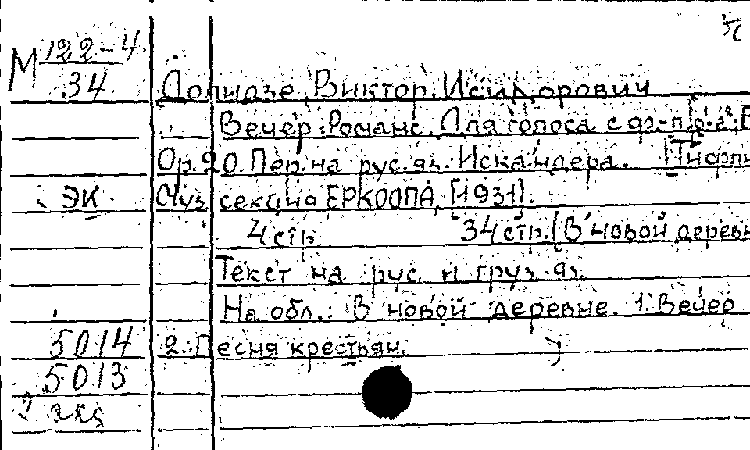 М 122-4
34
Долидзе, Виктор Исидорович
Вечер. Романс. Для голоса с ф-п.
Ор. 20. Пер. на рус. яз. Искандера.
ЭК Муз. секция ЕРКООПА, [1931].
4 стр. 34 стр. (В новой деревн
Текст на рус. и груз. яз.
На обл.: В новой деревне. 1. Вечер
5014 2. Песня крестьян.
5013
2 экз